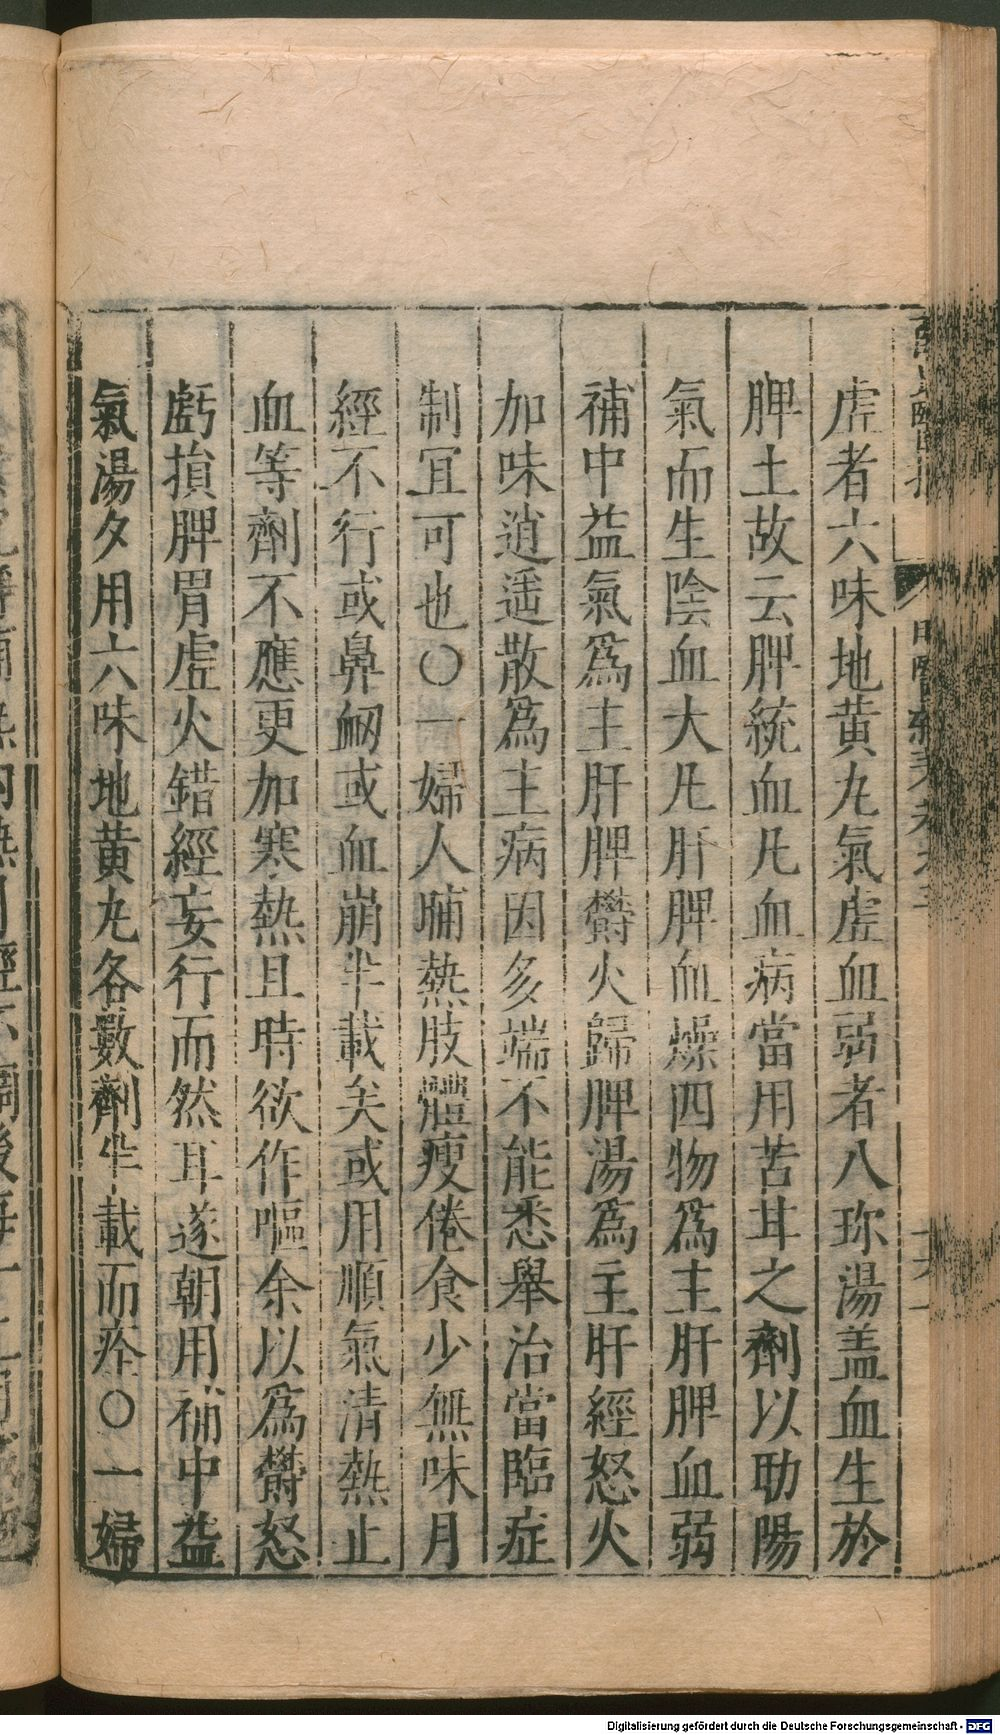 虛者六味地黃丸氣虛血弱者八珍湯盖血生於
脾土故云脾統血凡血病當用苦甘之劑以助陽
氣而生陰血大凡肝脾血燥四物爲主肝脾血弱
補中益氣爲主肝脾欝火歸脾湯爲主肝經怒火
加味逍遥散爲主病因多端不能悉舉治當臨症
制冝可也〇一婦人晡熱肢體瘦倦食少無味月
經不行或鼻衂或血崩半載矣或用順氣清熱止
血等劑不應更加寒熱且時欲作嘔余以爲欝怒
虧損脾胃虛火錯經妄行而然耳遂朝用補中益
氣湯夕用六味地黃丸各數劑半載而痊〇一婦
Digitalisierung gefördert durch die Deutsche Forschungsgemeinschaft - DFG